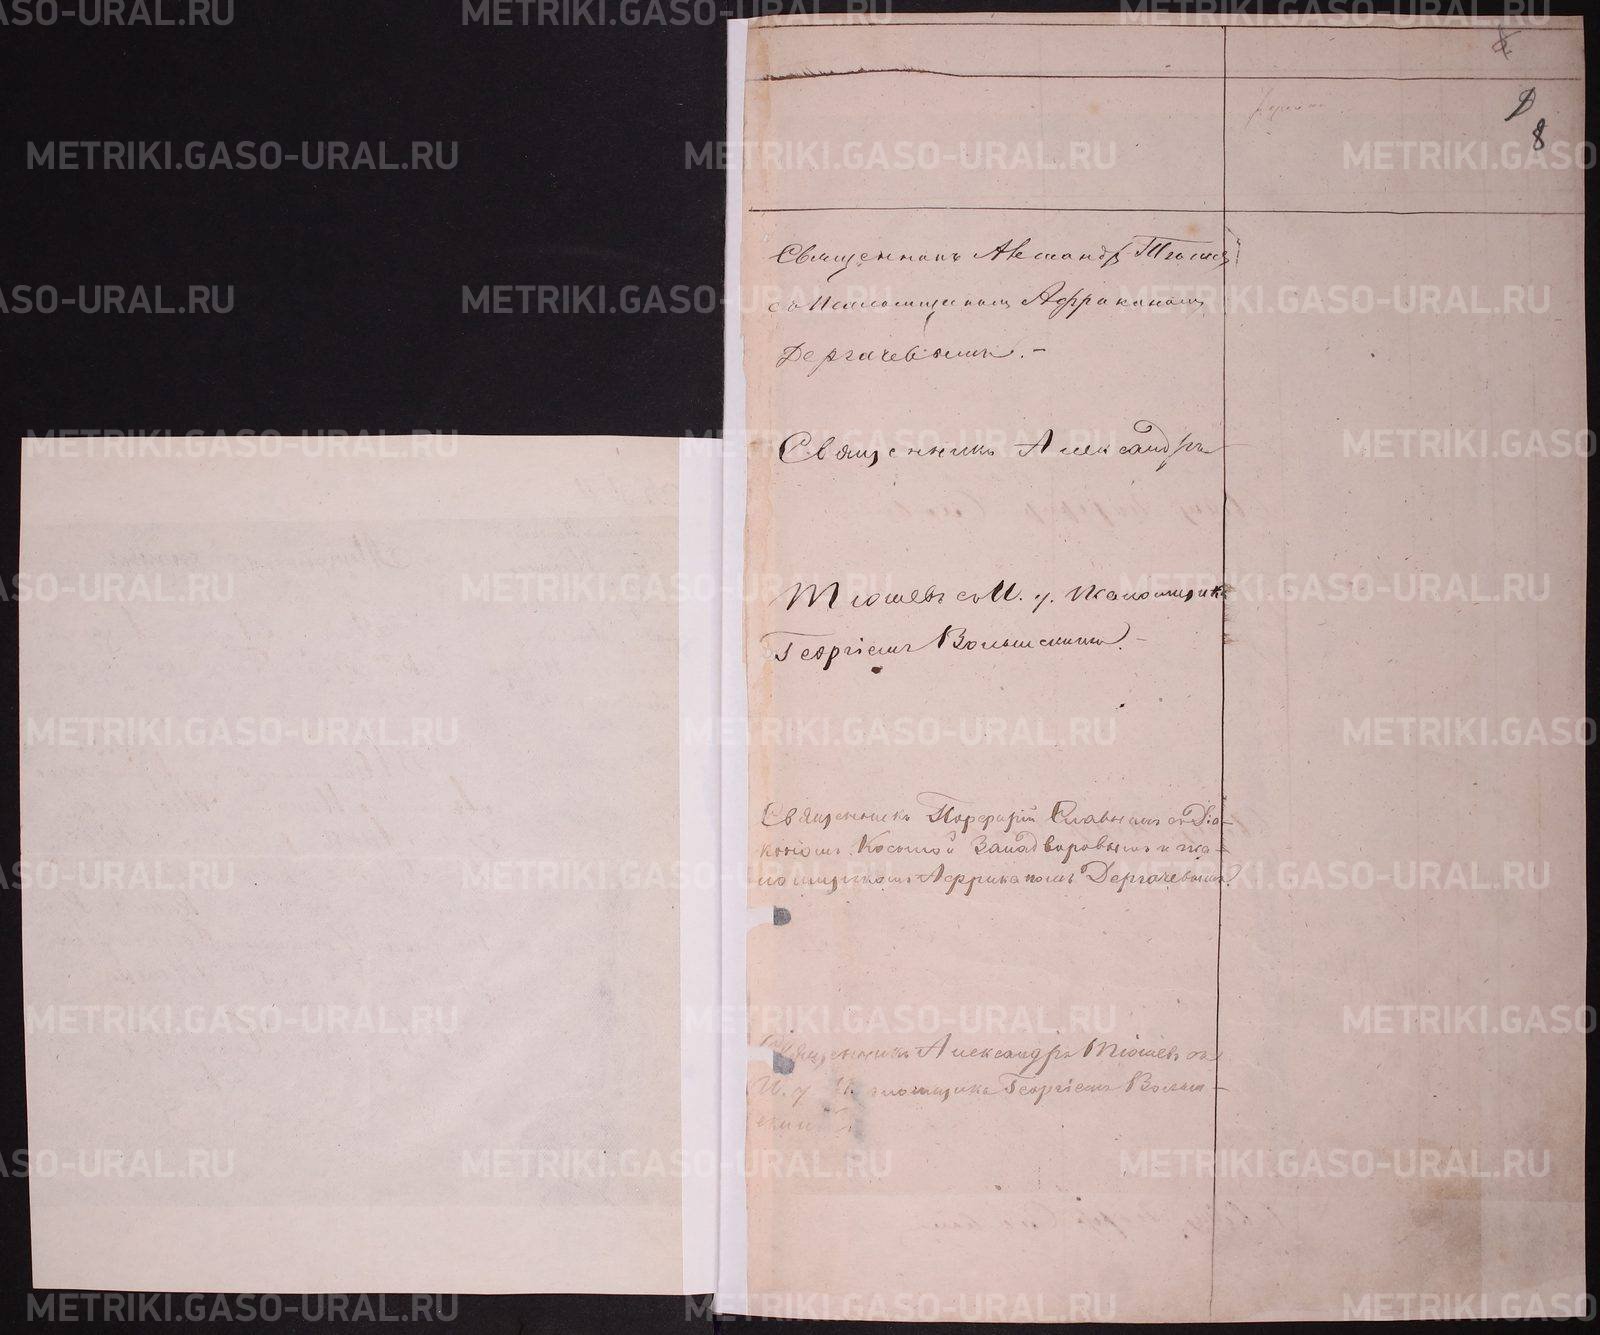 8
Священникъ Александръ Тюшевъ
съ Псаломщикомъ Африканомъ
Дергачевымъ. –
Священникъ Александръ
Тюшевъ съ И. д. Псаломщика
Георгіемъ Волынскимъ. –
Священникъ Порфирій Славнинъ съ Діа-
кономъ Космой Западворовымъ и пса-
ломщикомъ Африканомъ Дергачевымъ.
Священникъ Александръ Тюшевъ съ
И. д. Псаломщика Георгіемъ Волын-
скимъ.
METRIKI.GASO-URAL.RU